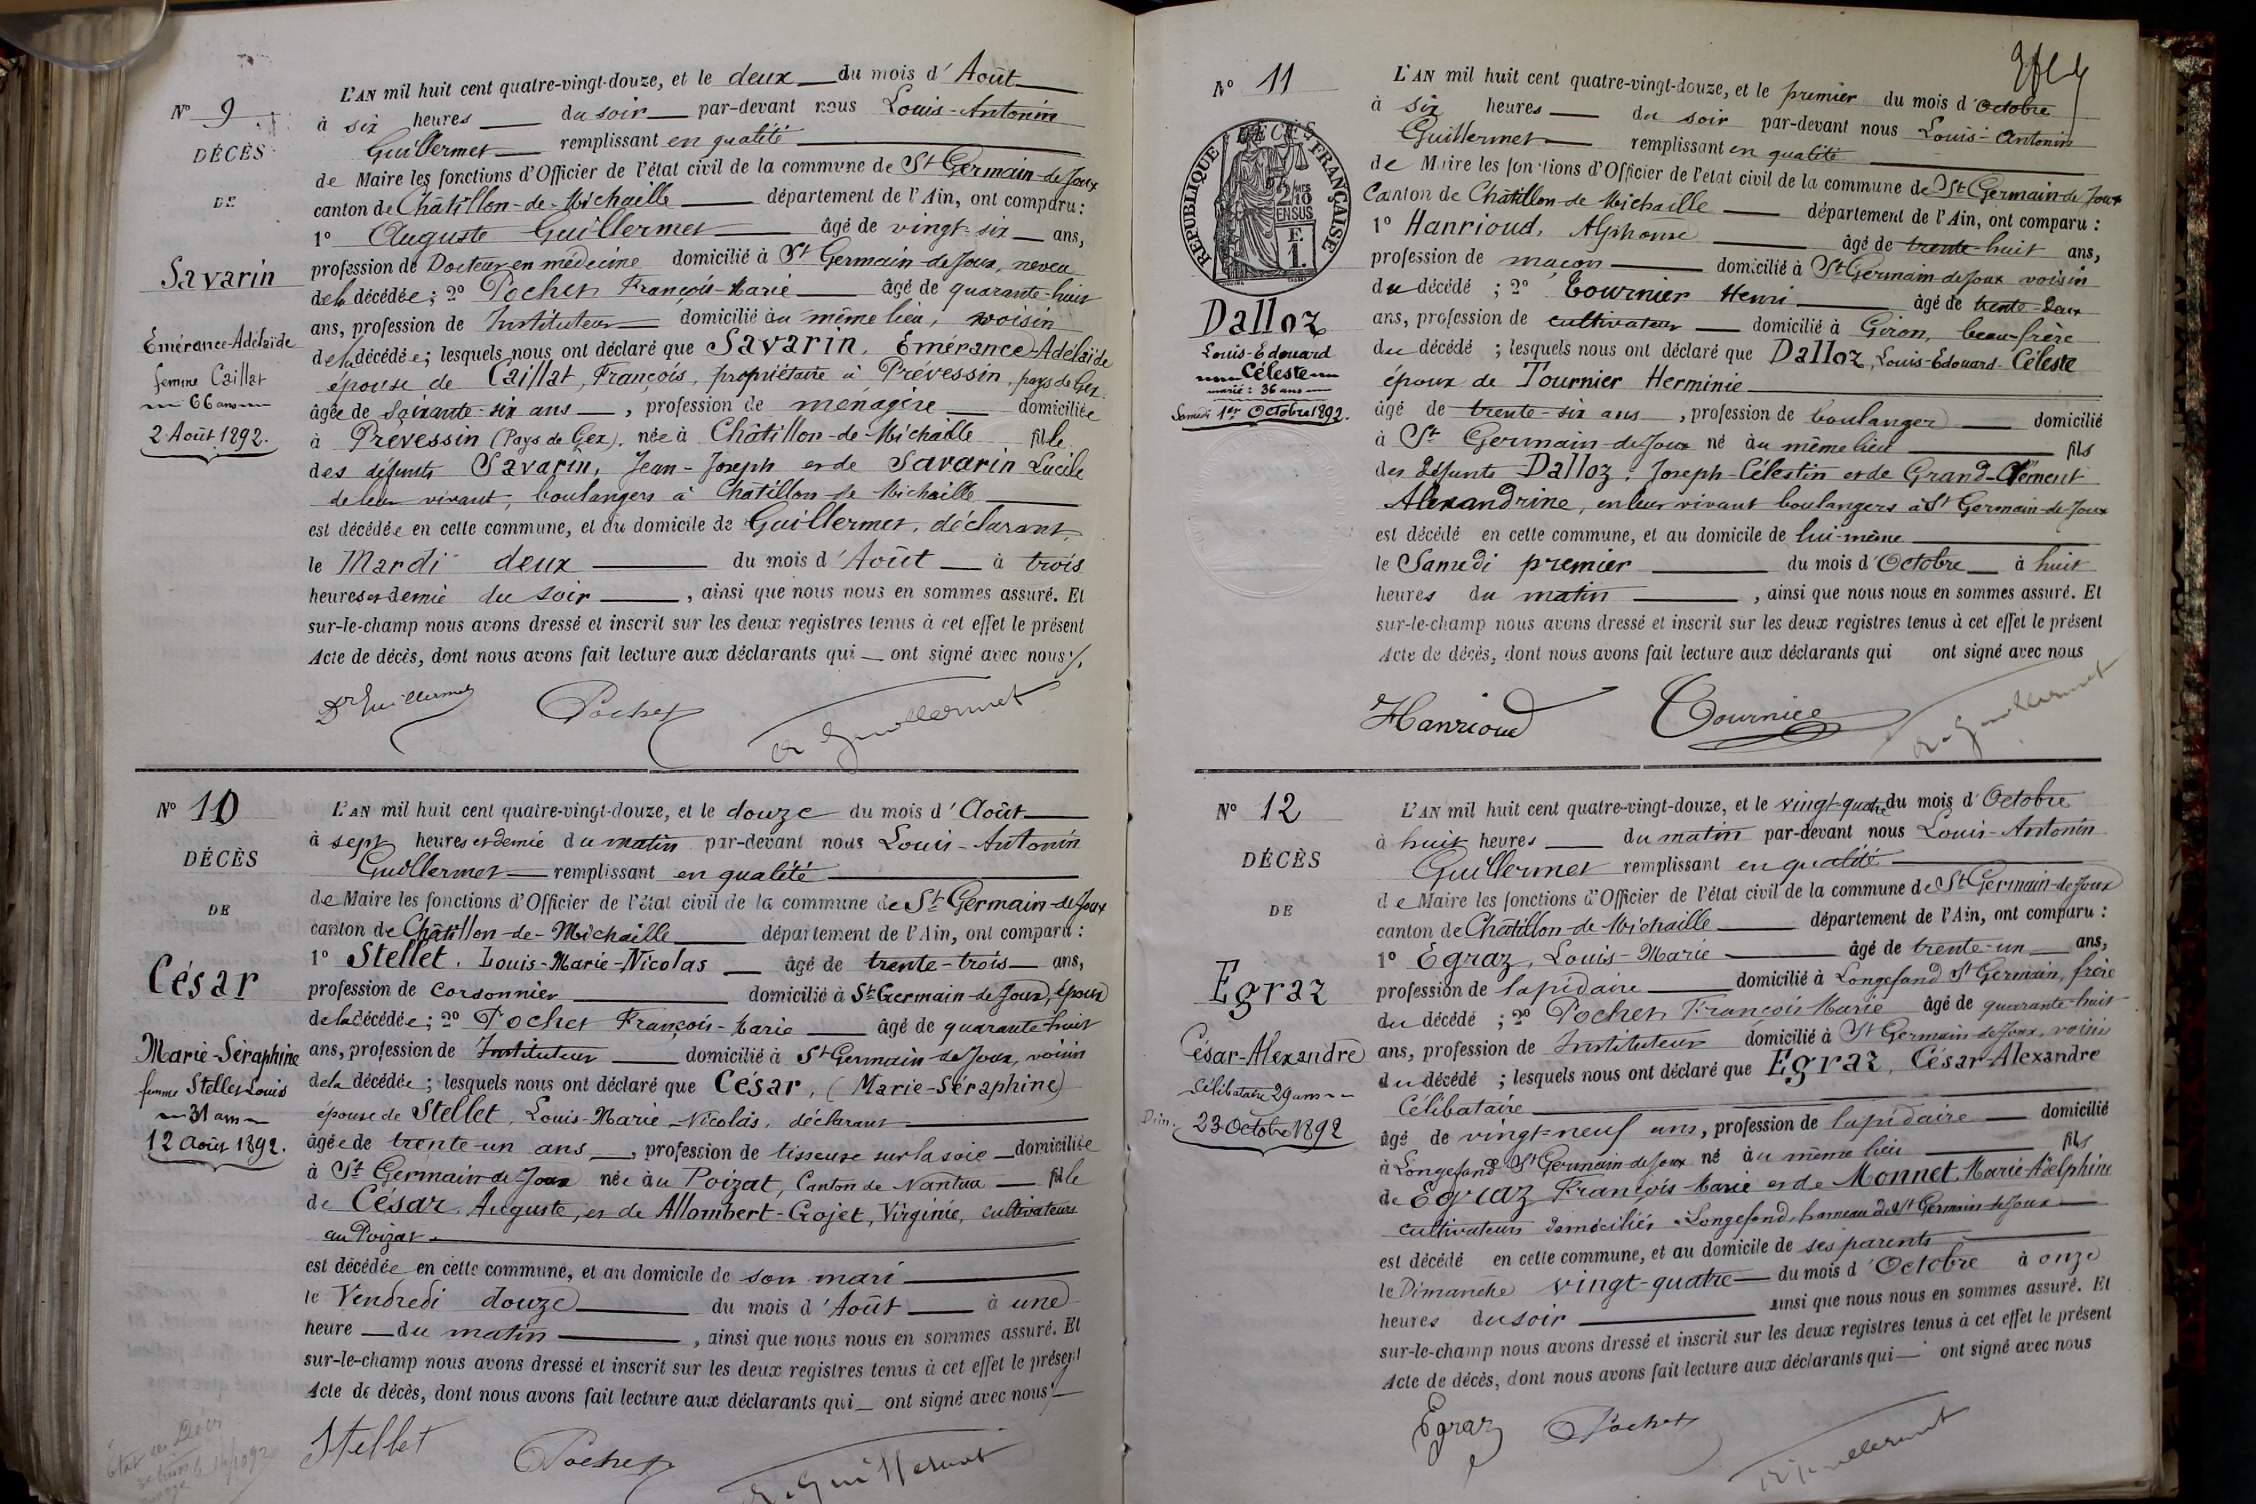 N° 9
DÉCÈS
DE
Savarin
Emérance-Adélaïde
femme Caillat
66 ans
2 Août 1892.
L'AN mil huit cent quatre-vingt-douze, et le deux du mois d'Août
à six heures du soir par-devant nous Louis-Antonin
Guillermet remplissant en qualité
de Maire les fonctions d'Officier de l'état civil de la commune de St Germain-de-Joux
canton de Châtillon-de-Michaille département de l'Ain, ont comparu :
1° Auguste Guillermet âgé de vingt-six ans,
profession de Docteur en médecine domicilié à St Germain-de-Joux, neveu
de la décédée ; 2° Pochet François-Marie âgé de quarante-huit
ans, profession de Instituteur domicilié au même lieu, voisin
de la décédée ; lesquels nous ont déclaré que Savarin, Emérance-Adélaïde
épouse de Caillat, François, propriétaire à Prévessin, pays de Gex
âgée de soixante-six ans, profession de ménagère domiciliée
à Prévessin (Pays de Gex), née à Châtillon-de-Michaille fille
des défunts Savarin, Jean-Joseph et de Savarin Lucile
de leur vivant, boulangers à Châtillon de Michaille
est décédée en cette commune, et au domicile de Guillermet, déclarant,
le Mardi deux du mois d'Août à trois
heures et demie du soir, ainsi que nous nous en sommes assuré. Et
sur-le-champ nous avons dressé et inscrit sur les deux registres tenus à cet effet le présent
Acte de décès, dont nous avons fait lecture aux déclarants qui ont signé avec nous /.
Dr Guillermet Pochet A Guillermet
N° 10
DÉCÈS
DE
César
Marie-Séraphine
femme Stellet Louis
31 ans
12 Août 1892.
L'AN mil huit cent quatre-vingt-douze, et le douze du mois d'Août
à sept heures et demie du matin par-devant nous Louis-Antonin
Guillermet remplissant en qualité
de Maire les fonctions d'Officier de l'état civil de la commune de St Germain-de-Joux
canton de Châtillon-de-Michaille département de l'Ain, ont comparu :
1° Stellet, Louis-Marie-Nicolas âgé de trente-trois ans,
profession de cordonnier domicilié à St Germain-de-Joux, époux
de la décédée ; 2° Pochet François-Marie âgé de quarante-huit
ans, profession de Instituteur domicilié à St Germain-de-Joux, voisin
de la décédée ; lesquels nous ont déclaré que César, (Marie-Séraphine)
épouse de Stellet, Louis-Marie-Nicolas, déclarant
âgée de trente-un ans, profession de tisseuse sur la soie domiciliée
à St Germain-de-Joux née au Poizat, Canton de Nantua fille
de César, Auguste, et de Allombert-Gojet, Virginie, cultivateurs
au Poizat
est décédée en cette commune, et au domicile de son mari
le Vendredi douze du mois d'Août à une
heure du matin, ainsi que nous nous en sommes assuré. Et
sur-le-champ nous avons dressé et inscrit sur les deux registres tenus à cet effet le présent
Acte de décès, dont nous avons fait lecture aux déclarants qui ont signé avec nous
Stellet Pochet A. Guillermet
N° 11
DÉCÈS
RÉPUBLIQUE FRANÇAISE
2/10 EN SUS
E.
1.
Dalloz
Louis-Edouard
Céleste
marié : 36 ans
Samedi 1er Octobre 1892.
L'AN mil huit cent quatre-vingt-douze, et le premier du mois d'Octobre
à six heures du soir par-devant nous Louis-Antonin
Guillermet remplissant en qualité
de Maire les fonctions d'Officier de l'état civil de la commune de St Germain-de-Joux
Canton de Châtillon-de-Michaille département de l'Ain, ont comparu :
1° Hanrioud, Alphonse âgé de trente-huit ans,
profession de maçon domicilié à St Germain-de-Joux voisin
du décédé ; 2° Tournier Henri âgé de trente-deux
ans, profession de cultivateur domicilié à Giron, beau-frère
du décédé ; lesquels nous ont déclaré que Dalloz, Louis-Edouard-Céleste
époux de Tournier Herminie
âgé de trente-six ans, profession de boulanger domicilié
à St Germain-de-Joux né au même lieu fils
des défunts Dalloz, Joseph-Célestin et de Grand-Clément
Alexandrine, en leur vivant boulangers à St Germain-de-Joux
est décédé en cette commune, et au domicile de lui-même
le Samedi premier du mois d'Octobre à huit
heures du matin, ainsi que nous nous en sommes assuré. Et
sur-le-champ nous avons dressé et inscrit sur les deux registres tenus à cet effet le présent
Acte de décès, dont nous avons fait lecture aux déclarants qui ont signé avec nous
Hanrioud Tournier A. Guillermet
N° 12
DÉCÈS
DE
Egraz
César-Alexandre
célibataire 29 ans
Dim. 23 Octobre 1892
L'AN mil huit cent quatre-vingt-douze, et le vingt-quatre du mois d'Octobre
à huit heures du matin par-devant nous Louis-Antonin
Guillermet remplissant en qualité
de Maire les fonctions d'Officier de l'état civil de la commune de St Germain-de-Joux
canton de Châtillon-de-Michaille département de l'Ain, ont comparu :
1° Egraz, Louis-Marie âgé de trente-un ans,
profession de lapidaire domicilié à Longefand St Germain, frère
du décédé ; 2° Pochet François Marie âgé de quarante-huit
ans, profession de Instituteur domicilié à St Germain-de-Joux, voisin
du décédé ; lesquels nous ont déclaré que Egraz, César-Alexandre
Célibataire
âgé de vingt-neuf ans, profession de lapidaire domicilié
à Longefand St Germain-de-Joux né au même lieu fils
de Egraz François-Marie et de Monnet Marie-Adelphine
cultivateurs domiciliés à Longefand, hameau de St Germain-de-Joux
est décédé en cette commune, et au domicile de ses parents
le Dimanche vingt-quatre du mois d'Octobre à onze
heures du soir ainsi que nous nous en sommes assuré. Et
sur-le-champ nous avons dressé et inscrit sur les deux registres tenus à cet effet le présent
Acte de décès, dont nous avons fait lecture aux déclarants qui ont signé avec nous
Egraz Pochet A. Guillermet